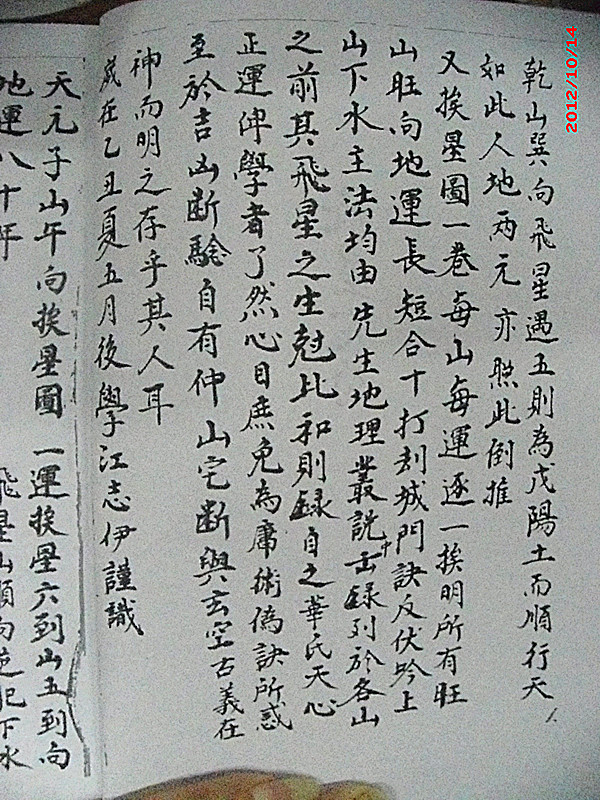 乾山巽向飛星遇五則為戊陽土而順行天
如此人地兩元亦照此倒推
又挨星圖一卷每山每運逐一挨明所有旺
山旺向地運長短合十打刼城門訣反伏吟上
山下水主法均由先生地理叢說中录録列於各山
之前其飛星之生尅比和則録自之華氏天心
正運俾學者了然心目庶免為庸術偽訣所惑
至於吉凶斷驗自有仲山宅斷與玄空古義在
神而明之存乎其人耳
歲在乙丑夏五月後學江志伊謹識
天元子山午向挨星圖 一運挨星六到山五到向
地運八十年 飛星山順向逆犯下水
2012/10/14